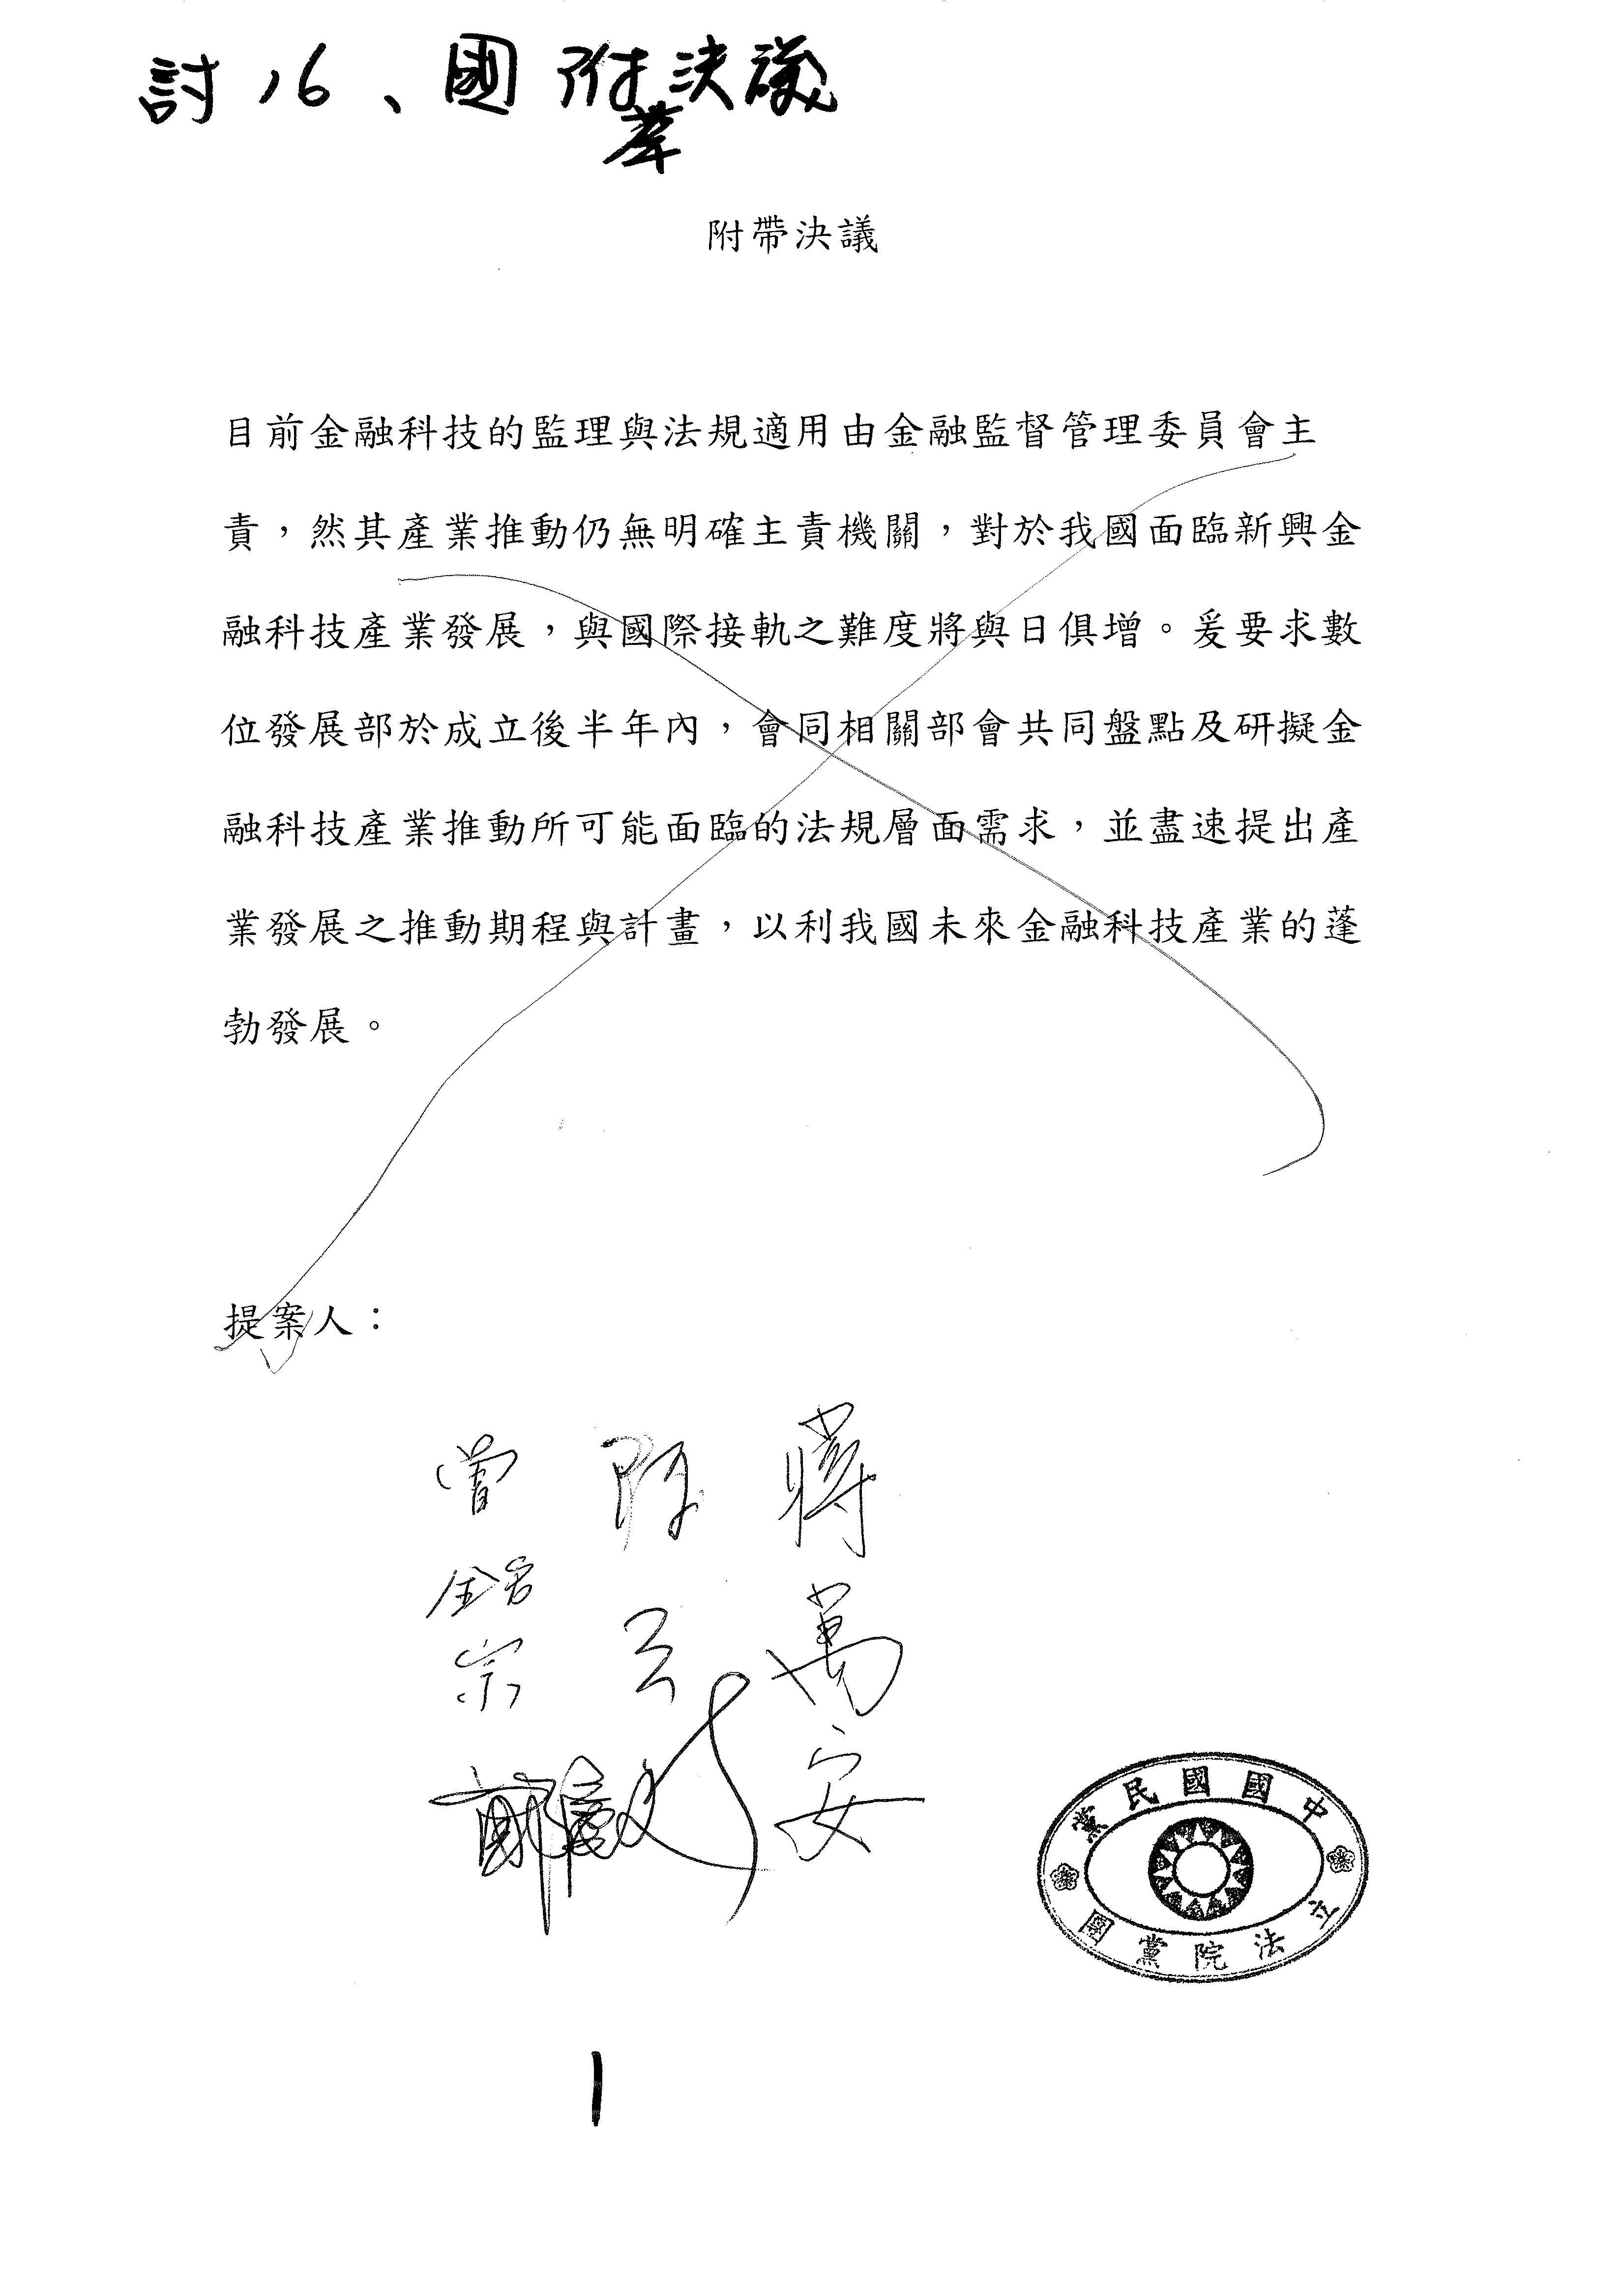 討16、國 附決議
附帶決議
目前金融科技的監理與法規適用由金融監督管理委員會主
責，然其產業推動仍無明確主責機關，對於我國面臨新興金
融科技產業發展，與國際接軌之難度將與日俱增。爰要求數
位發展部於成立後半年內，會同相關部會共同盤點及研擬金
融科技產業推動所可能面臨的法規層面需求，並盡速提出產
業發展之推動期程與計畫，以利我國未來金融科技產業的蓬
勃發展。
提案人：
蔣萬安
陳玉
曾銘宗
鄭
中國國民黨
立法院黨團
1